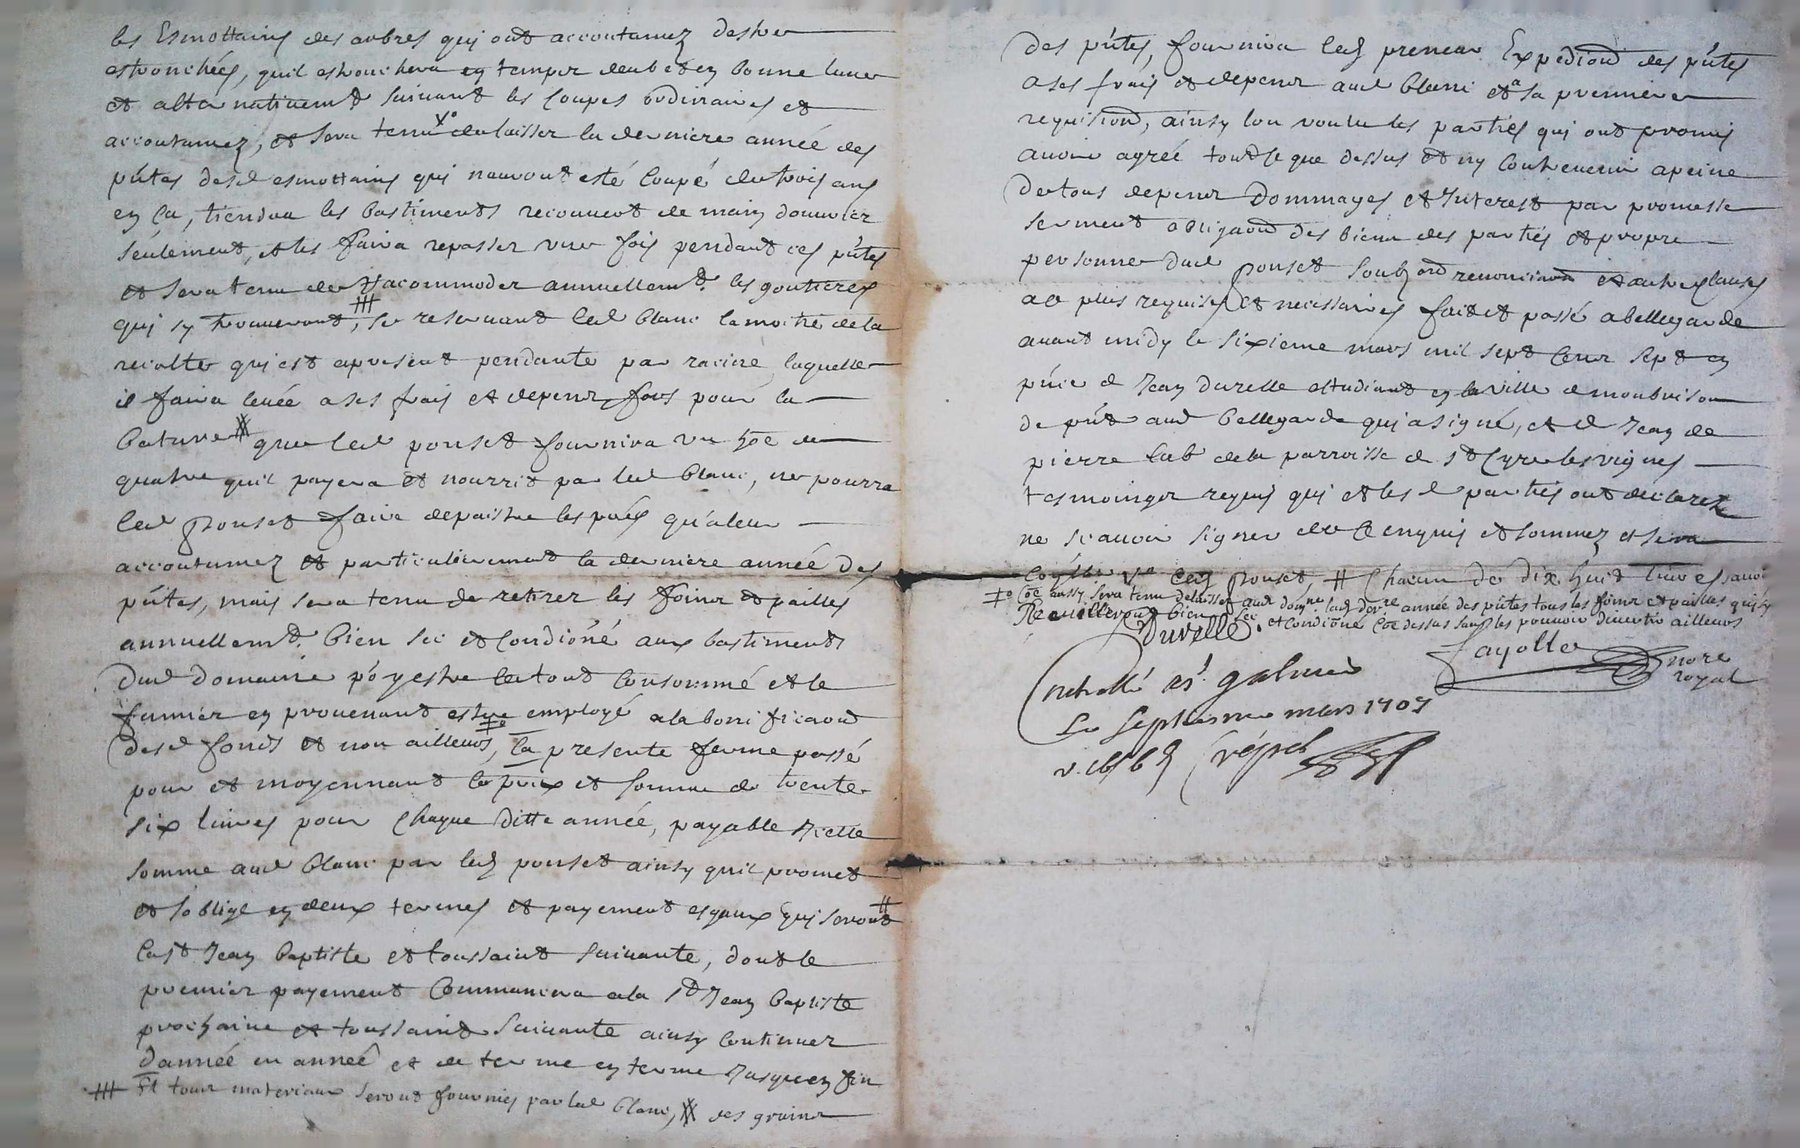 les Esmottains des arbres qui ont accoutumez destre
estronchées, quil estronchera en temps deub et en bonne lune
et alternativemt suivant les coupes ordinaires et
accoutumez, et sera tenu de laisser la derniere année des
pntes desd esmottains qui nauront esté coupé de trois ans
en ça, tiendra les bastiments recouvert de main douvrier
seulement, et les faira repasser une fois pendant ces pntes
et sera tenu de racommoder annuellemt les goutieres
qui sy trouveront, se reservant led blanc la moitié de la
recolte qui est apresent pendante par racine, laquelle
il faira levée a ses frais et depens, fors pour la
bature que led ponset fournira un hoe de
quatre quil payera et nourrit par led blanc, ne pourra
led ponset faire depaistre les prés qu'aleur
accoutumez et particulierement la derniere année des
pntes, mais sera tenu de retirer les foins et pailles
annuellemt bien sec et condioné aux bastiments
dud domaine p'o y estre le tout consommé et le
fumier en provenant estre employé a la bonificaon
desd fonds et non ailleurs, la presente ferme passé
pour et moyennant le prix et somme de trente
six livres pour chaque ditte année, payable icelle
somme aud blanc par led ponset ainsy quil promet
et soblige en deux termes et payement esgaux qui seront
la st Jean baptiste et toussaint suivante, dont le
premier payement commancera a la st Jean baptiste
prochaine et toussaint suivante ainsy continuer
dannée en année et de terme en terme jusques en fin
Et tous materiaux seront fournies par led blanc, des grains
des pntes, fournira led preneur Expediond des pntes
a ses frais et depens aud blanc et a sa premiere
requisiond, ainsy lon voulu les parties qui ont promis
avoir agrée tout le que dessus et ny contrevenir apeine
de tous depens dommages et Interest par promesse
serment obligaond des biens des parties et propre
personne dud ponset soubz ond renonciaond et autres clauses
a ce plus requises et necessaires fait et passé a bellegarde
avant midy le sixieme mars mil sept Cens sept en
pnce de Jean durelle estudiant en la ville de monbrison
de pnt aud bellegarde qui a signé, et de Jean de
pierre lab de la parroisse de st Cyre les vignes
tesmoings requis qui et les d parties ont declarez
ne scavoir signer de ce enquis et sommez et sera
led ponset, Chacun de dix huit livres,
Coe aussy sera tenu delaisser aud domne lad derre année des pntes tous les foins et pailles qui sy
Recuilleront bien sec et condioné Coe dessus sans les pouvoir divertir ailleurs
Durelle
fayolle
nore
royal
Controllé a st galmier
Le septiesme mars 1707